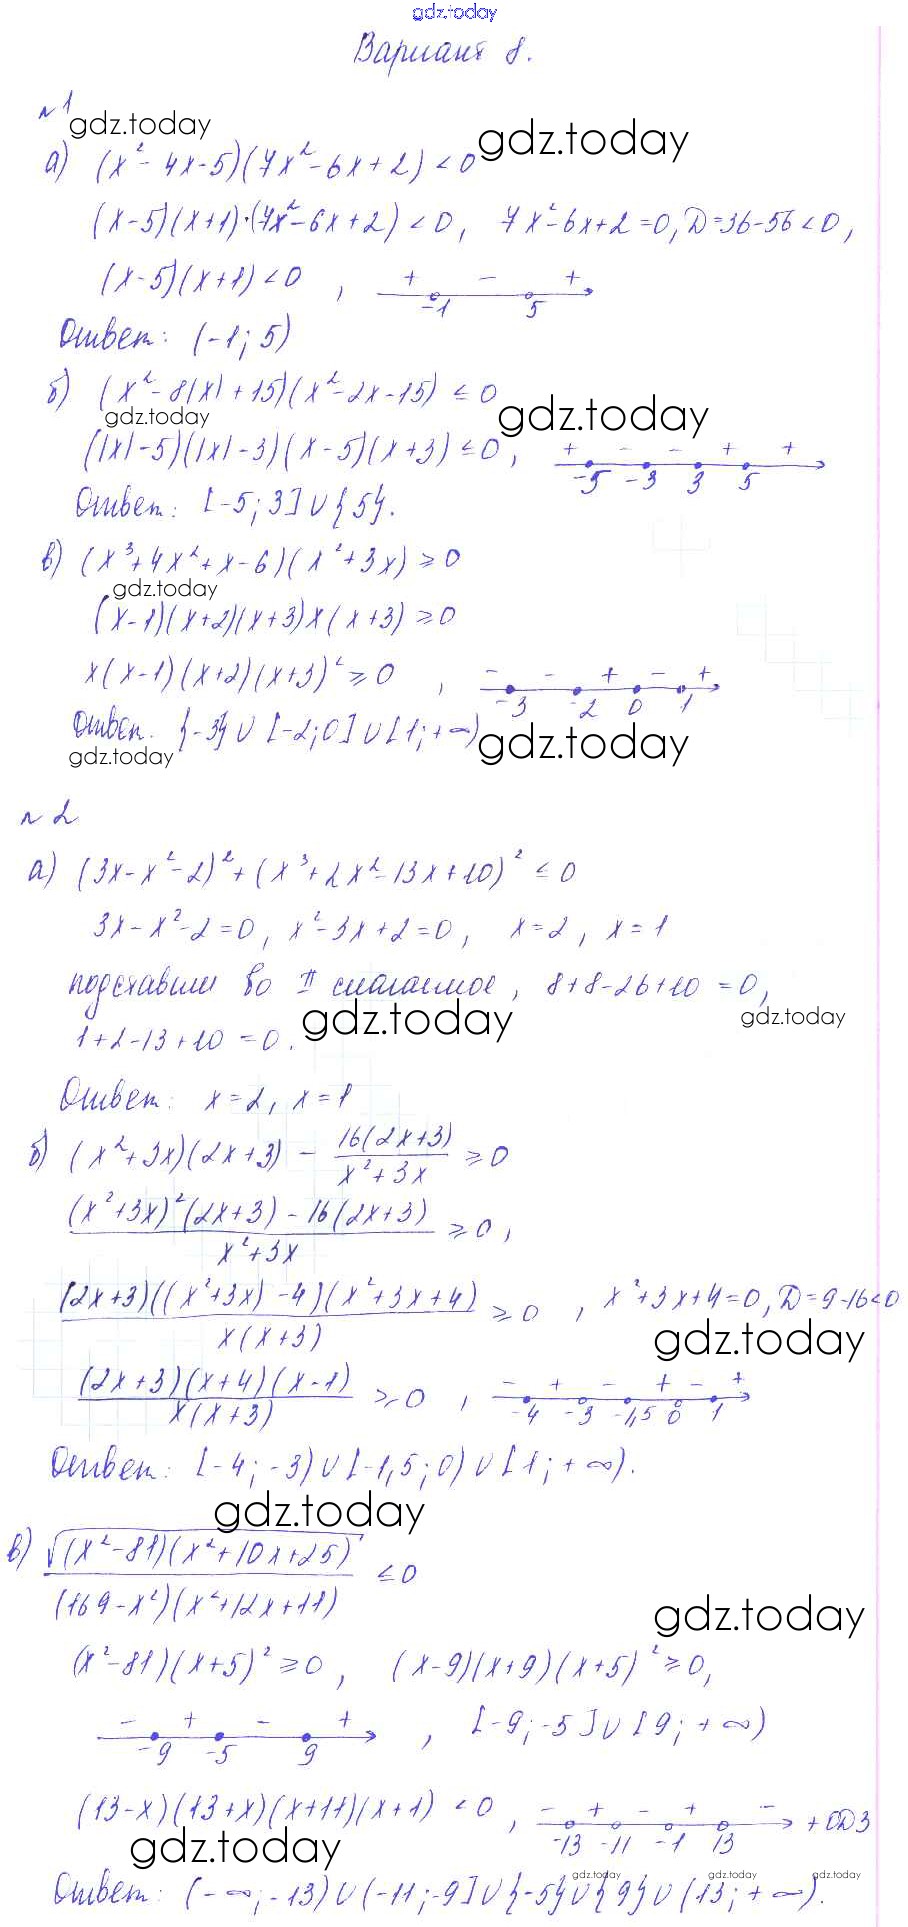 gdz.today
Вариант 8.
№1
gdz.today
gdz.today
а) (x² - 4x - 5)(7x² - 6x + 2) < 0
(x-5)(x+1)·(7x² - 6x + 2) < 0, 7x² - 6x + 2 = 0, D = 36 - 56 < 0,
(x-5)(x+1) < 0 , + - + -1 5
Ответ: (-1; 5)
б) (x² - 8|x| + 15)(x² - 2x - 15) ≤ 0
gdz.today gdz.today
(|x| - 5)(|x| - 3)(x - 5)(x + 3) ≤ 0, + - - + + -5 -3 3 5
Ответ: [-5; 3] ∪ {5}.
в) (x³ + 4x² + x - 6)(x² + 3x) ≥ 0
gdz.today
(x-1)(x+2)(x+3)x(x+3) ≥ 0
x(x-1)(x+2)(x+3)² ≥ 0 , - - + - + -3 -2 0 1
Ответ. {-3} ∪ [-2; 0] ∪ [1; +∞)
gdz.today gdz.today
№2
а) (3x - x² - 2)² + (x³ + 2x² - 13x + 10)² ≤ 0
3x - x² - 2 = 0, x² - 3x + 2 = 0, x = 2, x = 1
подставим во II слагаемое, 8+8-26+10 = 0,
gdz.today gdz.today
1+2-13+10 = 0.
Ответ: x = 2, x = 1
б) (x² + 3x)(2x+3) - 16(2x+3)/(x² + 3x) ≥ 0
((x² + 3x)²(2x+3) - 16(2x+3))/(x² + 3x) ≥ 0,
(2x+3)((x²+3x) - 4)(x² + 3x + 4)/(x(x+3)) ≥ 0 , x² + 3x + 4 = 0, D = 9 - 16 < 0
gdz.today
(2x+3)(x+4)(x-1)/(x(x+3)) ≥ 0 , - + - + - + -4 -3 -1,5 0 1
Ответ: [-4; -3) ∪ [-1,5; 0) ∪ [1; +∞).
gdz.today
в) √((x² - 81)(x² + 10x + 25))/((169 - x²)(x² + 12x + 11)) ≤ 0
gdz.today
(x² - 81)(x+5)² ≥ 0, (x-9)(x+9)(x+5)² ≥ 0,
- + - + -9 -5 9 , [-9; -5] ∪ [9; +∞)
(13-x)(13+x)(x+11)(x+1) < 0 , - + - + - -13 -11 -1 13 + ОДЗ
gdz.today
gdz.today gdz.today gdz.today
Ответ: (-∞; -13) ∪ (-11; -9] ∪ {-5} ∪ {9} ∪ (13; +∞).